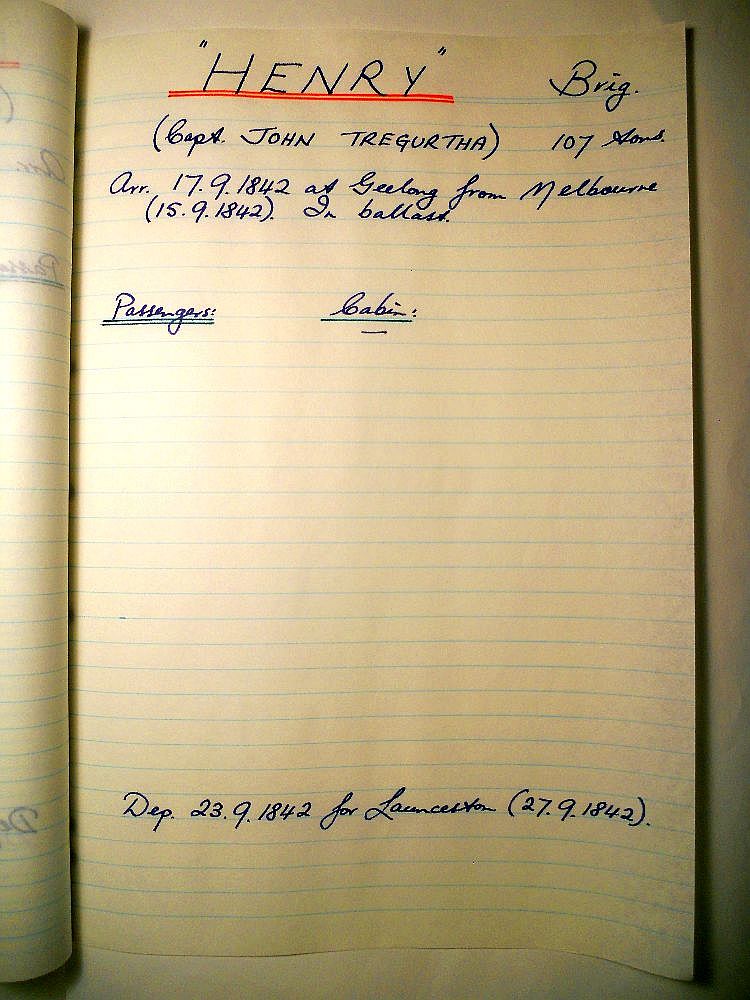 "HENRY" Brig.
(Capt. JOHN TREGURTHA) 107 tons.
Arr. 17.9.1842 at Geelong from Melbourne
(15.9.1842). In ballast.
Passengers: Cabin:
—
Dep. 23.9.1842 for Launceston (27.9.1842).